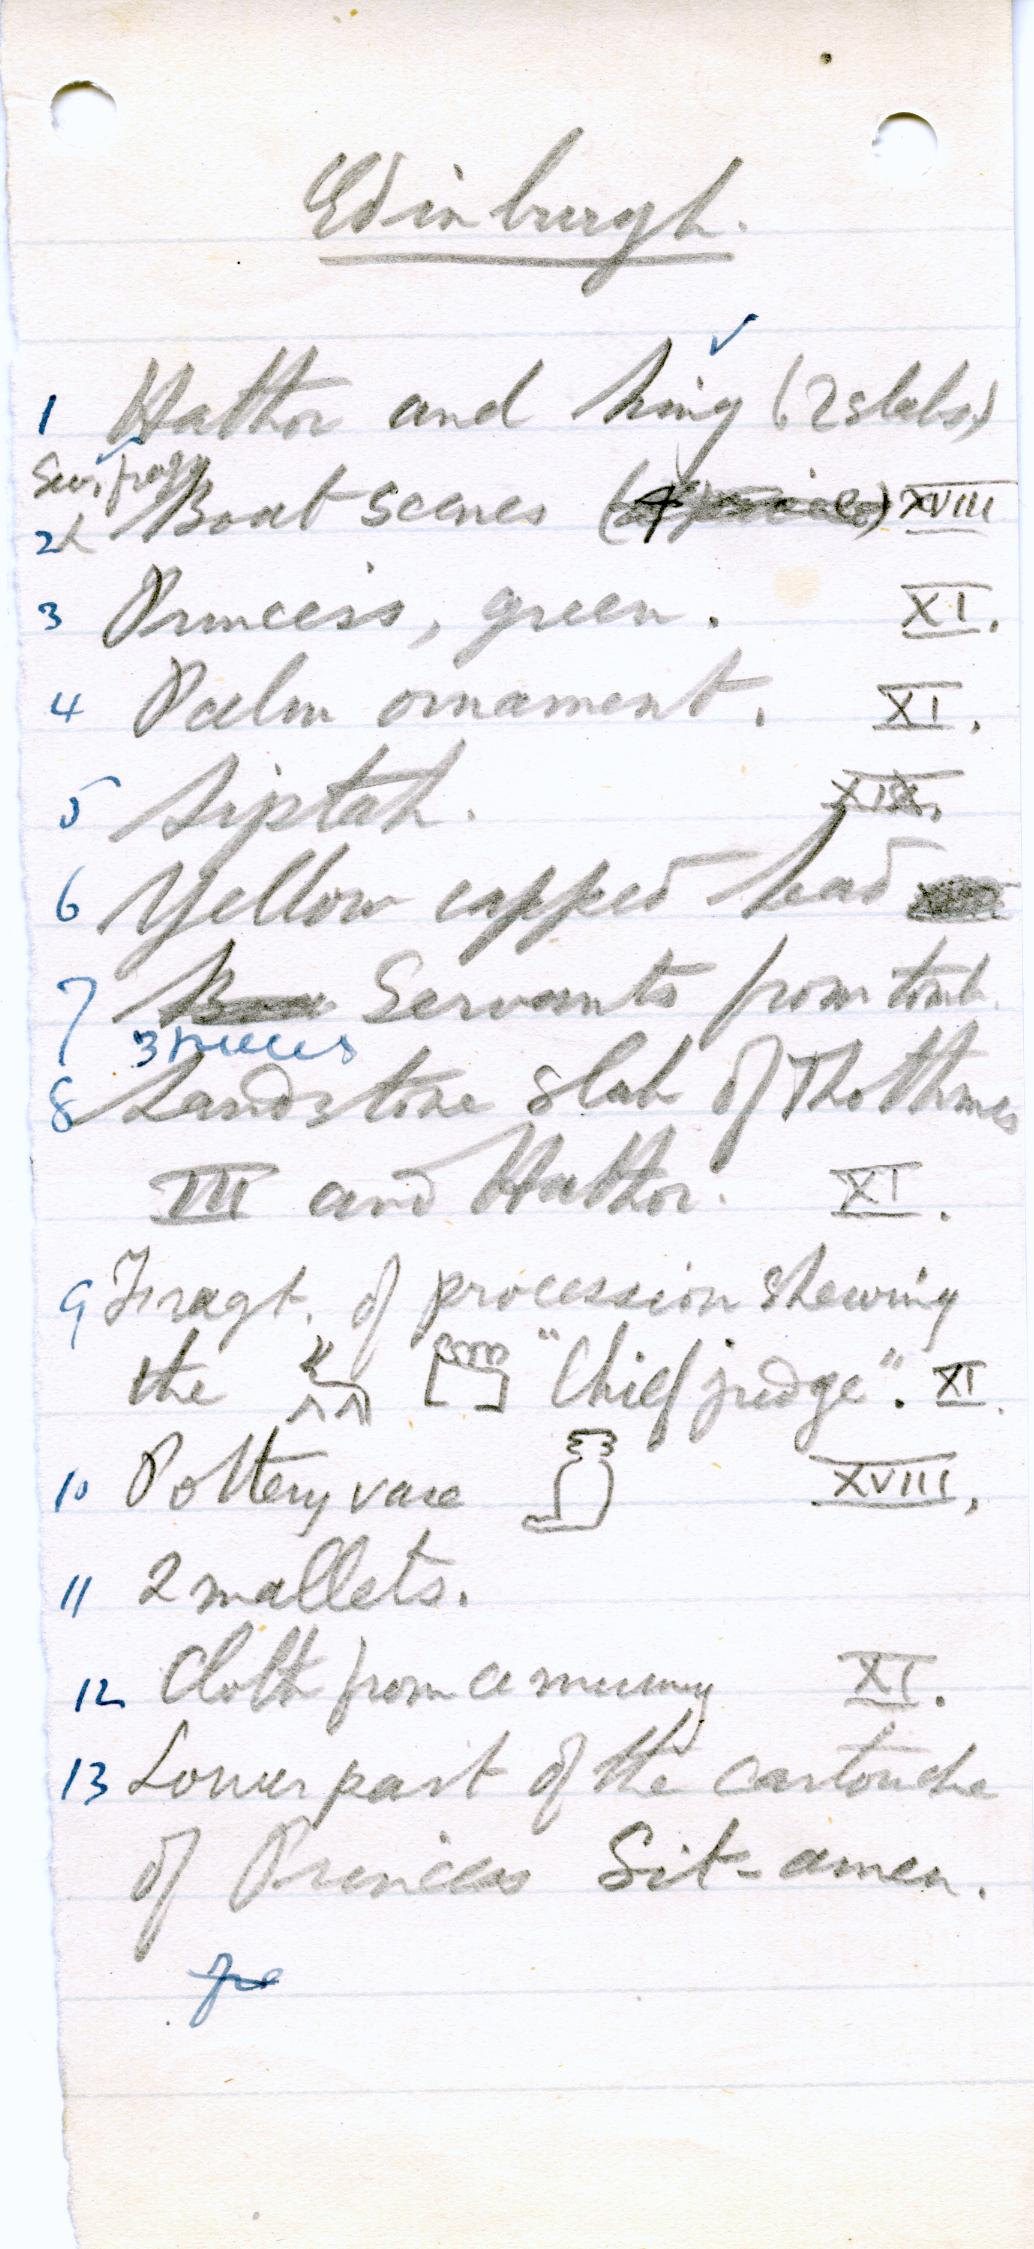 Edinburgh.
1 Hathor and king (2 slabs)
Sev. fragts
2 Boat scenes (4 pieces) XVIII
3 Princess, green. XI.
4 Palm ornament. XI.
5 Siptah. XIX.
6 Yellow capped head
7 Servants from tomb.
3 pieces
8 Sandstone slab of Thothmes
III and Hathor. XI.
9 Fragt. of procession shewing
the "Chief judge". XI.
10 Pottery vase XVIII.
11 2 mallets.
12 Cloth from a mummy XI.
13 Lower part of the cartouche
of Princess Sit-amen.